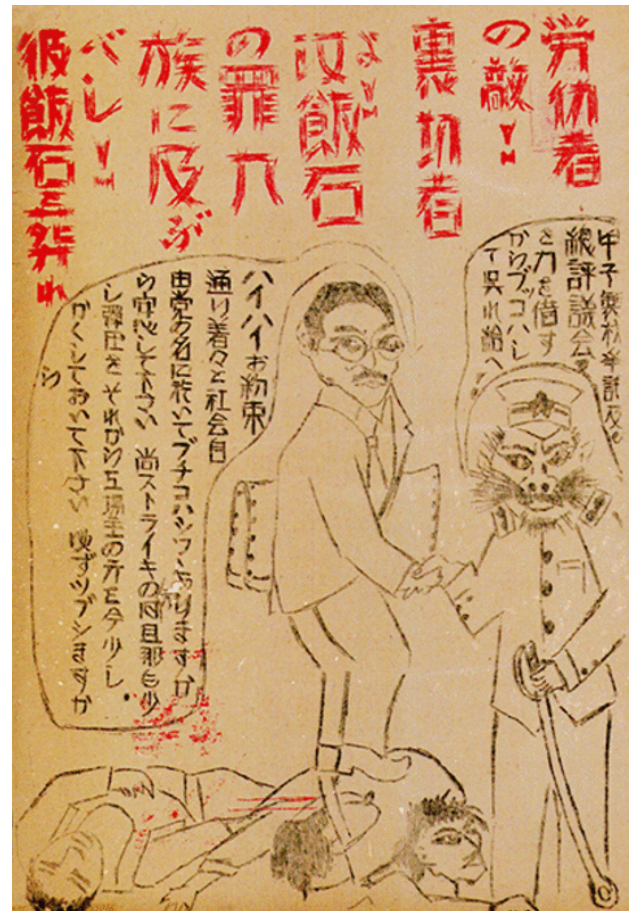 労仂者
の敵!!
裏切者
よ!!
汝飯石
の罪九
族に及ぶ
べし!!
彼飯石
総評議会を
と力を借す
からブッコハシ
て呉れ給へ
ハイハイお約束
通り着々と社会自
由党の名に於いてブチコハシツヽありますか
ら安心して下さい 尚ストライキの時旦那も少
し弾圧を それから工場主の方も今少し
かくしておいて下さい 必ずツブシますか
ら